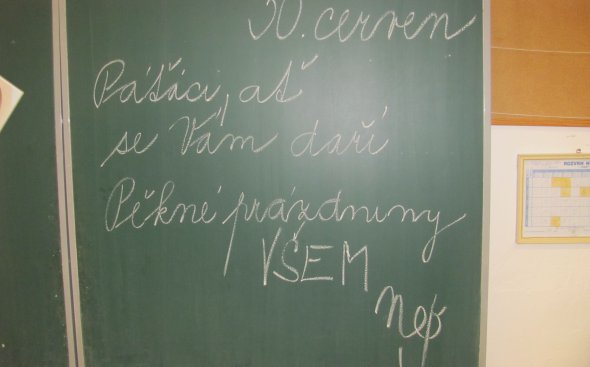 30. červen
Páťáci, ať
se Vám daří
Pěkné prázdniny
VŠEM
ROZVRH H